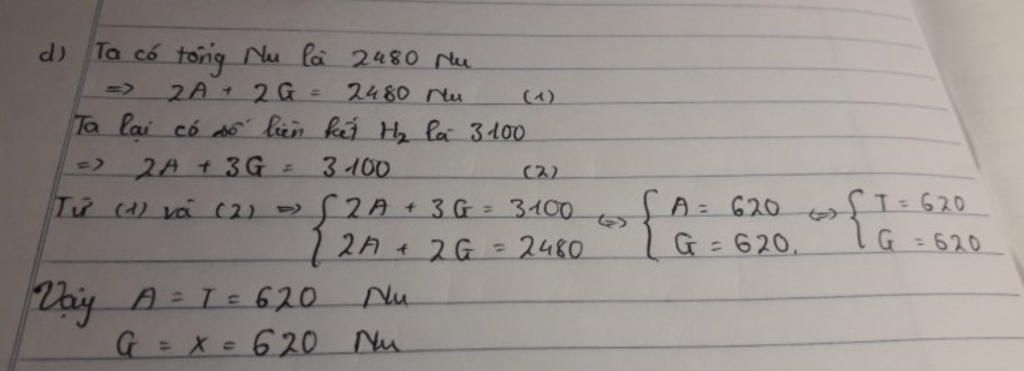 d) Ta có tổng Nu là 2480 Nu
=> 2A + 2G = 2480 Nu (1)
Ta lại có số liên kết H2 là 3100
=> 2A + 3G = 3100 (2)
Từ (1) và (2) => { 2A + 3G = 3100 <=> { A = 620 <=> { T = 620
2A + 2G = 2480 G = 620. G = 620
Vậy A = T = 620 Nu
G = X = 620 Nu